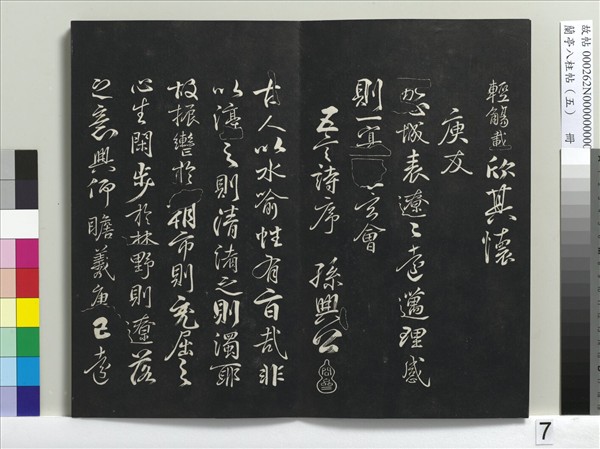 故帖 000262N000000000
蘭亭八柱帖（五） 冊
輕觴載欣其懷
庾友
馳心域表遼〻遠邁理感
則一冥 玄會
五言詩序 孫興公
古人以水喻性有旨哉非
以渟之則清淆之則濁耶
故振轡於朝市則充屈之
心生閑步於林野則遼落
之意興仰瞻羲唐已遠
7